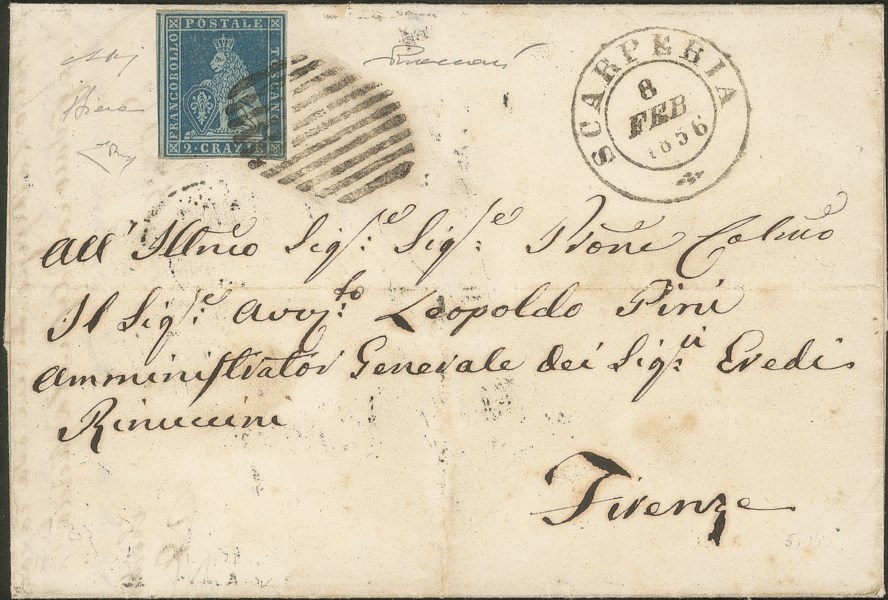 FRANCOBOLLO
POSTALE
TOSCANO
2·CRAZIE
SCARPERIA
8
FEB
1856
All' Illmo Sig:e Sig:e Prone Colmo
Il Sig:e Avv:to Leopoldo Pini
Amministrator Generale dei Sig:ri Eredi
Rinuccini
Firenze